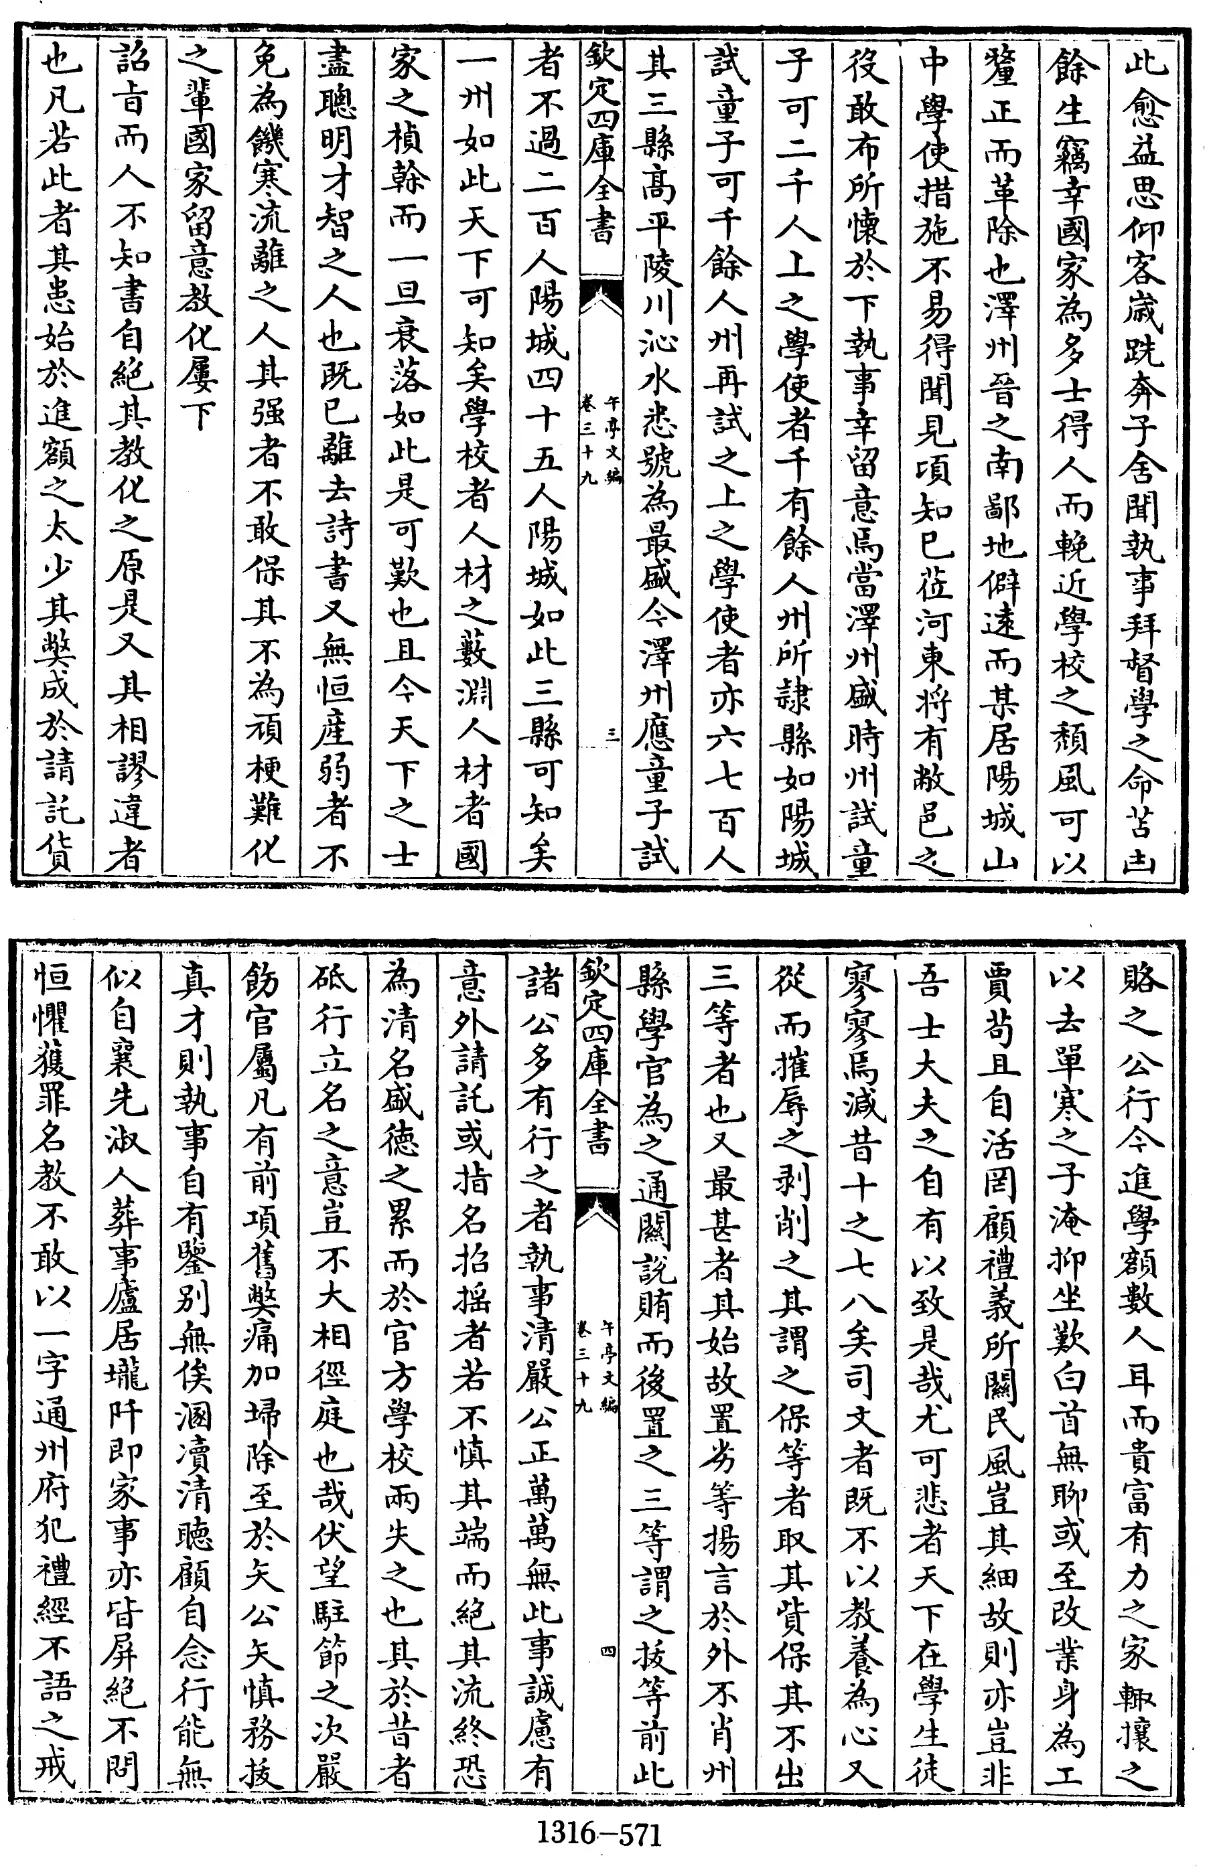 此愈益思仰客嵗跣奔子舍聞執事拜督學之命苫凷
餘生竊幸國家為多士得人而輓近學校之頽風可以
釐正而革除也澤州晉之南鄙地僻逺而某居陽城山
中學使措施不易得聞見頃知已蒞河東将有敝邑之
役敢布所懷於下執事幸留意焉當澤州盛時州試童
子可二千人上之學使者千有餘人州所隷縣如陽城
試童子可千餘人州再試之上之學使者亦六七百人
其三縣髙平陵川沁水悉號為最盛今澤州應童子試
欽定四庫全書
午亭文編
卷三十九
三
者不過二百人陽城四十五人陽城如此三縣可知矣
一州如此天下可知矣學校者人材之藪淵人材者國
家之楨榦而一旦衰落如此是可歎也且今天下之士
盡聰明才智之人也既已離去詩書又無恒産弱者不
免為饑寒流離之人其强者不敢保其不為頑梗難化
之輩國家留意教化屢下
詔㫖而人不知書自絶其教化之原是又其相謬違者
也凡若此者其患始於進額之太少其獘成於請託貨
賂之公行今進學額數人耳而貴富有力之家輙攘之
以去單寒之子淹抑坐歎白首無聊或至改業身為工
賈茍且自活罔顧禮義所闗民風豈其細故則亦豈非
吾士大夫之自有以致是哉尤可悲者天下在學生徒
寥寥焉減昔十之七八矣司文者既不以教養為心又
從而摧辱之剥削之其謂之保等者取其貲保其不出
三等者也又最甚者其始故置劣等揚言於外不肖州
縣學官為之通闗説賄而後置之三等謂之拔等前此
欽定四庫全書
午亭文編
卷三十九
四
諸公多有行之者執事清嚴公正萬萬無此事誠慮有
意外請託或指名招揺者若不慎其端而絶其流終恐
為清名盛徳之累而於官方學校兩失之也其於昔者
砥行立名之意豈不大相徑庭也哉伏望駐節之次嚴
飭官屬凡有前項舊獘痛加埽除至於矢公矢慎務拔
真才則執事自有鑒别無俟溷凟清聴顧自念行能無
似自襄先淑人葬事廬居壠阡即家事亦皆屏絶不問
恒懼獲罪名教不敢以一字通州府犯禮經不語之戒
1316—571